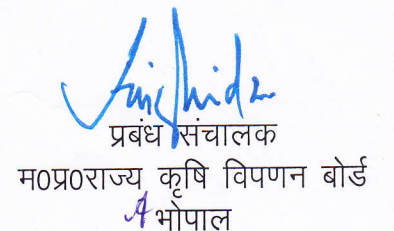 प्रबंध संचालक
म0प्र0राज्य कृषि विपणन बोर्ड
भोपाल